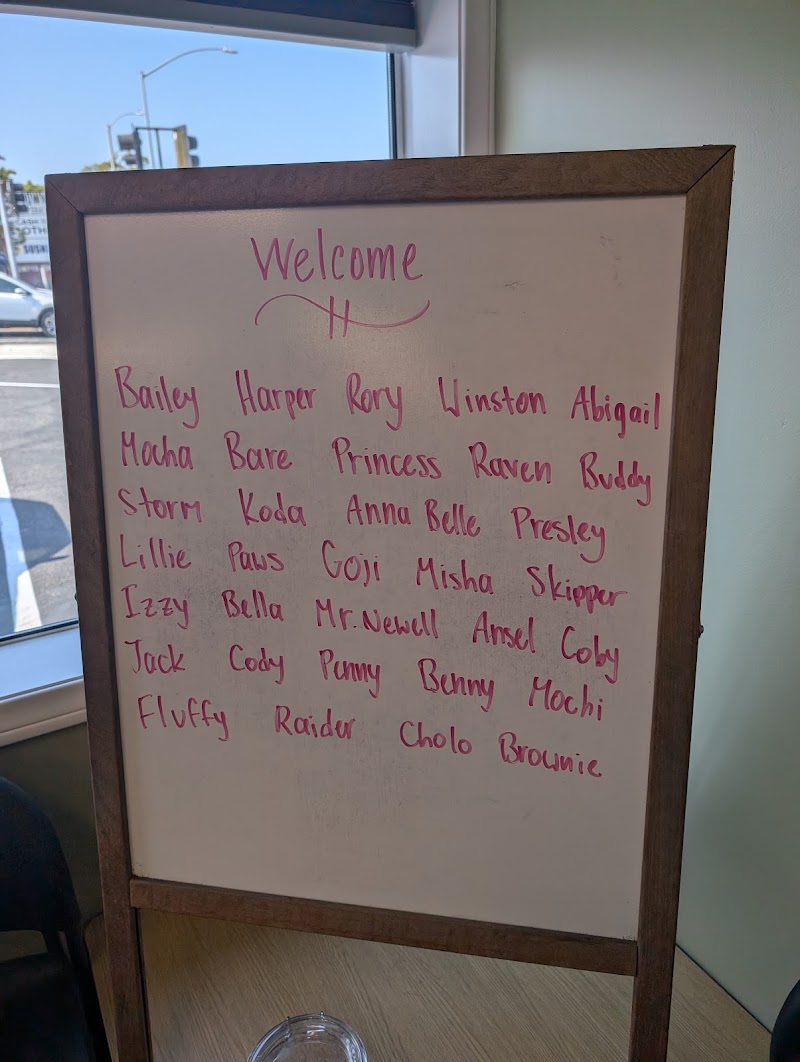 Welcome
Bailey Harper Rory Winston Abigail
Mocha Bare Princess Raven Buddy
Storm Koda Anna Belle Presley
Lillie Paws Goji Misha Skipper
Izzy Bella Mr. Newell Ansel Coby
Jack Cody Penny Benny Mochi
Fluffy Raider Cholo Brownie